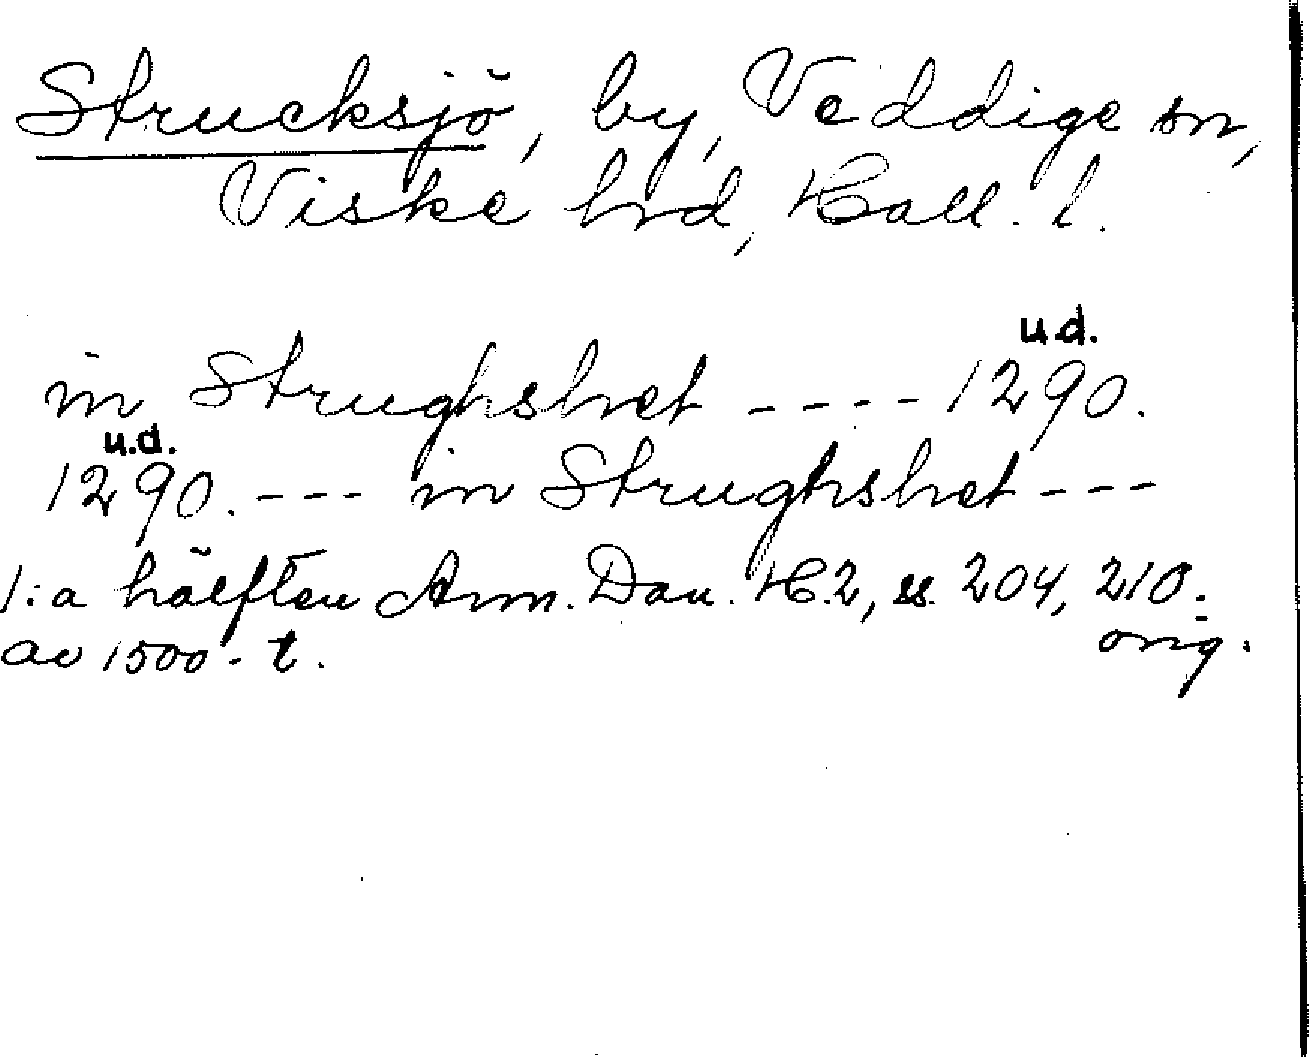 Strucksjö, by, Veddige sn,
Viske hrd, Hall. l.
u.d.
in Strughshet ---- 1290.
u.d.
1290. --- in Strughshet ---
1:a hälften Ann. Dan. H.2, ss. 204, 210.
av 1500-t. orig.